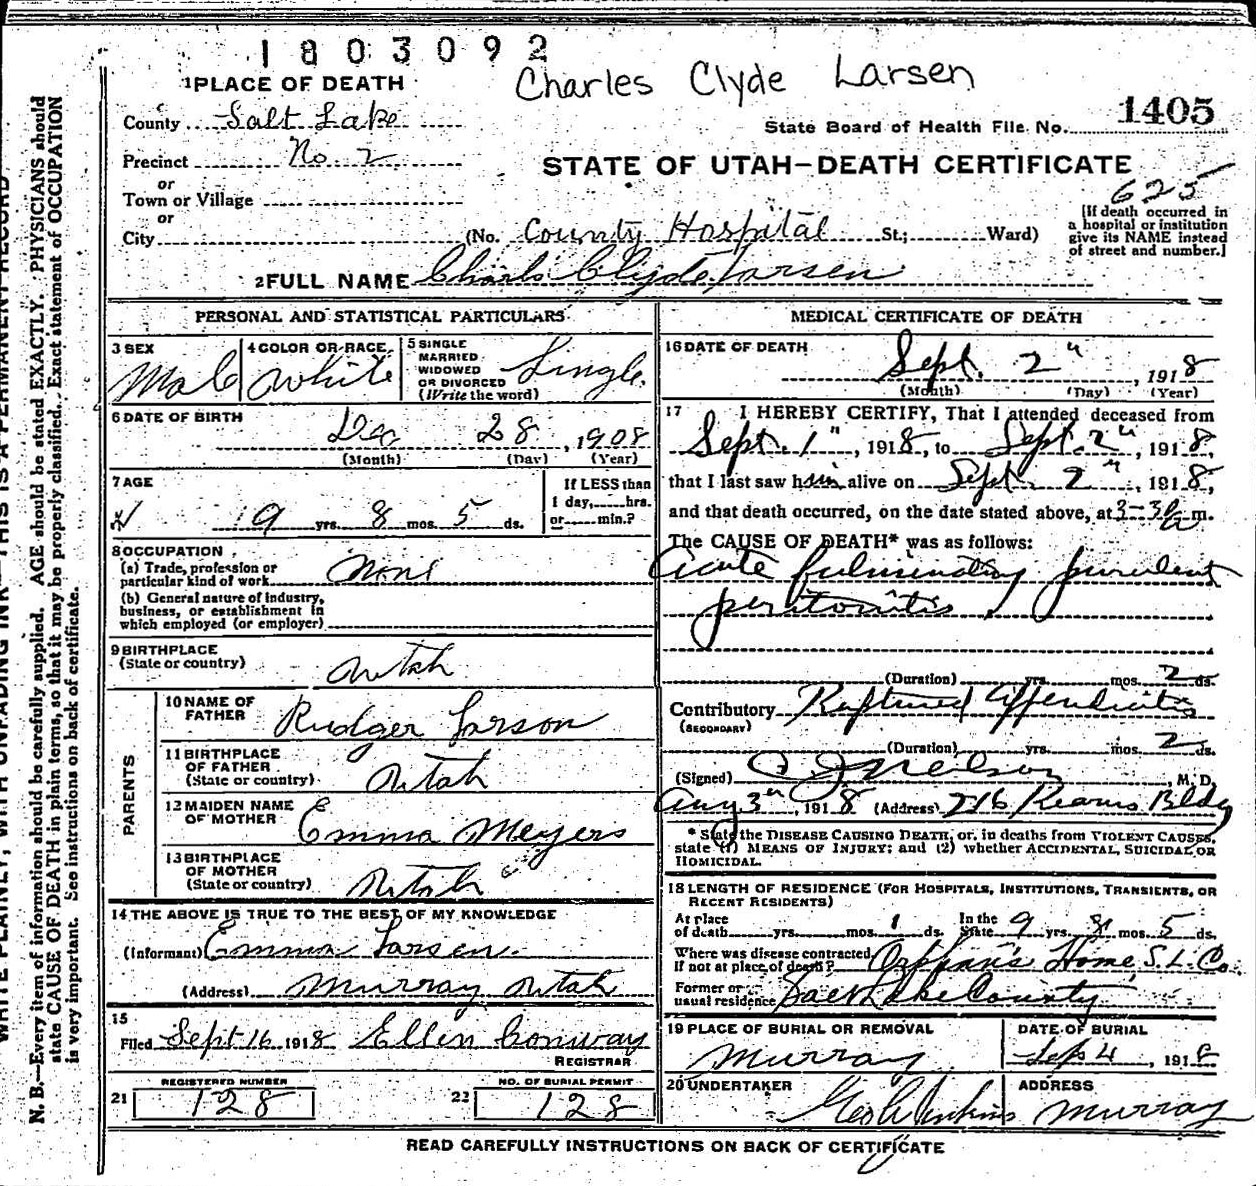 1803092
Charles Clyde Larsen
1 PLACE OF DEATH
County Salt Lake
State Board of Health File No. 1405
Precinct No. 2
STATE OF UTAH—DEATH CERTIFICATE
or
Town or Village
or
625
City (No. County Hospital St.; Ward)
[If death occurred in a hospital or institution give its NAME instead of street and number.]
2 FULL NAME Charls Clyde Larsen
PERSONAL AND STATISTICAL PARTICULARS
3 SEX Male
4 COLOR OR RACE White
5 SINGLE MARRIED WIDOWED OR DIVORCED (Write the word) Single
6 DATE OF BIRTH
Dec 28, 1908
(Month) (Day) (Year)
7 AGE
9 yrs. 8 mos. 5 ds.
If LESS than 1 day, hrs. or min.?
8 OCCUPATION
(a) Trade, profession or particular kind of work None
(b) General nature of industry, business, or establishment in which employed (or employer)
9 BIRTHPLACE
(State or country) Utah
PARENTS
10 NAME OF FATHER Rudger Larson
11 BIRTHPLACE OF FATHER (State or country) Utah
12 MAIDEN NAME OF MOTHER Emma Meyers
13 BIRTHPLACE OF MOTHER (State or country) Utah
14 THE ABOVE IS TRUE TO THE BEST OF MY KNOWLEDGE
(Informant) Emma Larsen
(Address) Murray Utah
15
Filed Sept 16 1918 Ellen Conway
REGISTRAR
21 REGISTERED NUMBER 128
22 NO. OF BURIAL PERMIT 128
MEDICAL CERTIFICATE OF DEATH
16 DATE OF DEATH
Sept. 2", 1918
(Month) (Day) (Year)
17 I HEREBY CERTIFY, That I attended deceased from
Sept. 1", 1918, to Sept. 2", 1918,
that I last saw him alive on Sept. 2", 1918,
and that death occurred, on the date stated above, at 3-30 m.
The CAUSE OF DEATH* was as follows:
Acute fulminating purulent
peritonitis
(Duration) yrs. mos. 2 ds.
Contributory (SECONDARY) Ruptured Appendicitis
(Duration) yrs. mos. 2 ds.
(Signed) Neilson, M. D.
Aug 3", 1918 (Address) 216 Kearns Bldg
* State the DISEASE CAUSING DEATH, or, in deaths from VIOLENT CAUSES,
state (1) MEANS OF INJURY; and (2) whether ACCIDENTAL, SUICIDAL OR
HOMICIDAL.
18 LENGTH OF RESIDENCE (FOR HOSPITALS, INSTITUTIONS, TRANSIENTS, OR
RECENT RESIDENTS)
At place of death yrs. mos. 1 ds. In the State 9 yrs. 8 mos. 5 ds.
Where was disease contracted, If not at place of death? Orphan's Home, S. L. Co.
Former or usual residence Salt Lake County
19 PLACE OF BURIAL OR REMOVAL
Murray
DATE OF BURIAL
Sep 4, 1918
20 UNDERTAKER
Geo Jenkins
ADDRESS
Murray
READ CAREFULLY INSTRUCTIONS ON BACK OF CERTIFICATE
WRITE PLAINLY, WITH UNFADING INK—THIS IS A PERMANENT RECORD
N. B.—Every item of information should be carefully supplied. AGE should be stated EXACTLY. PHYSICIANS should
state CAUSE OF DEATH in plain terms, so that it may be properly classified. Exact statement of OCCUPATION
is very important. See instructions on back of certificate.